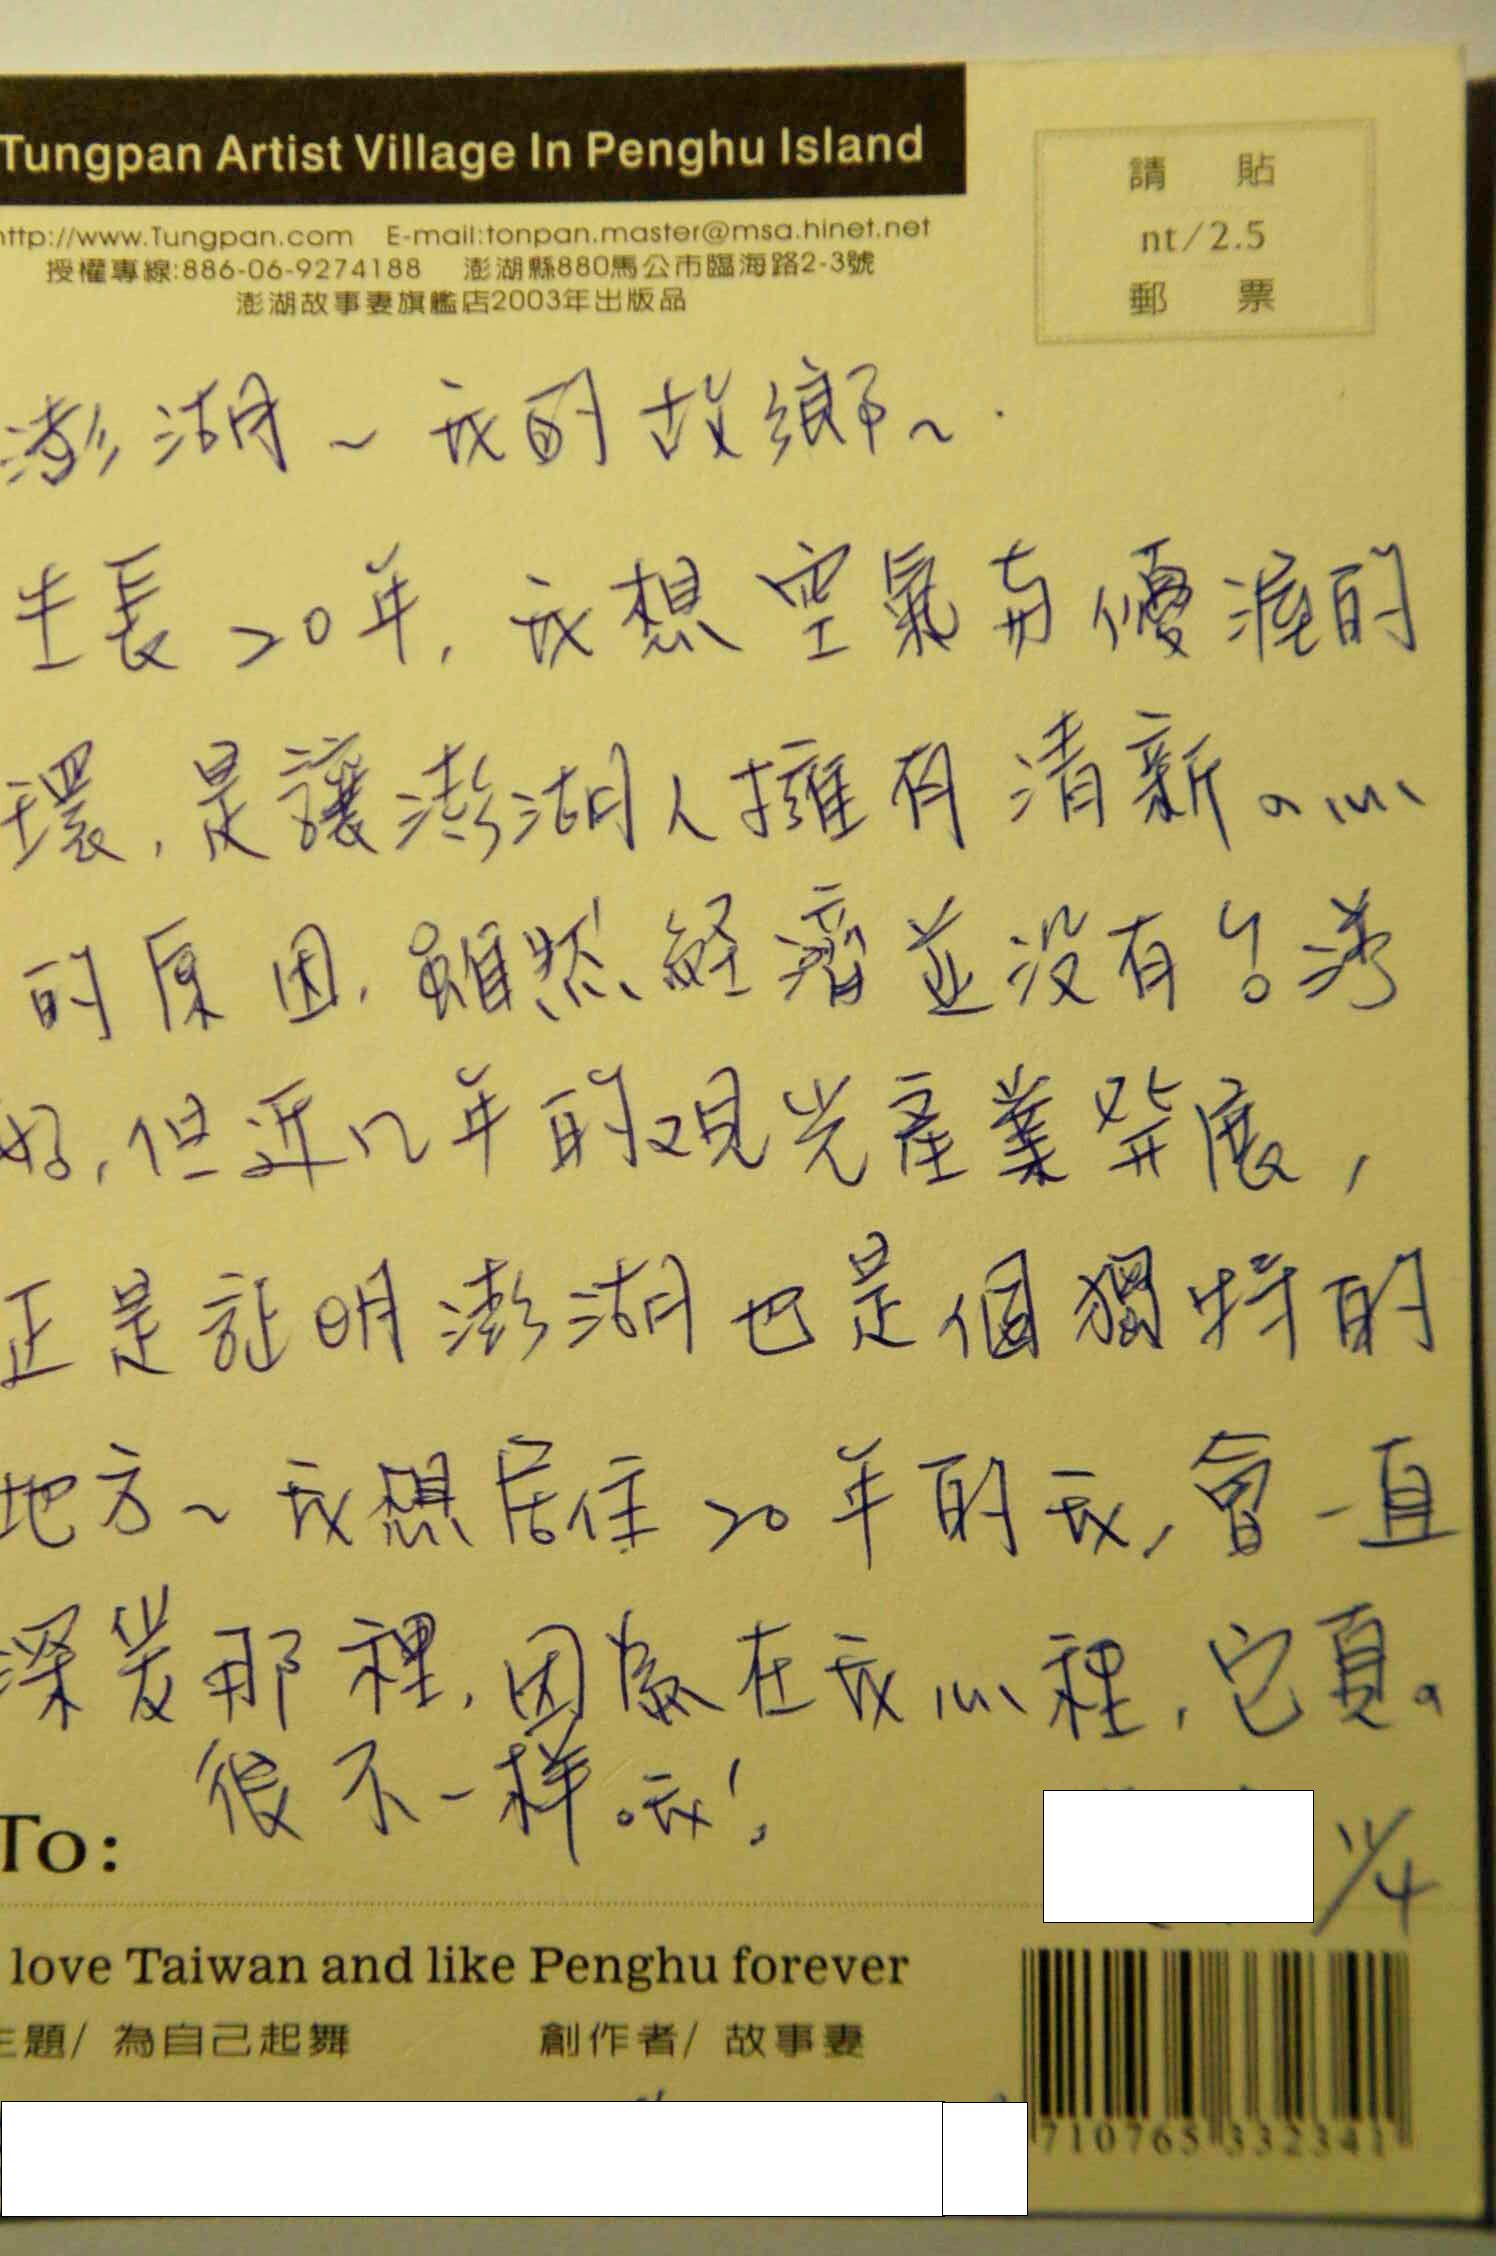 Tungpan Artist Village In Penghu Island
http://www.Tungpan.com E-mail:tonpan.master@msa.hinet.net
授權專線:886-06-9274188 澎湖縣880馬公市臨海路2-3號
澎湖故事妻旗艦店2003年出版品
請 貼
nt/2.5
郵 票
澎湖~我的故鄉~.
生長20年,我想空氣與優渥的
環,是讓澎湖人擁有清新の心
的原因,雖然経濟並没有台湾
好,但近几年的观光產業発展,
正是証明澎湖也是個獨特的
地方~我想居住20年的我,會一直
深爱那裡,因為在我心裡,它真の
很不一樣哦!
11/4
To:
love Taiwan and like Penghu forever
主題/ 為自己起舞 創作者/ 故事妻
710765 332341